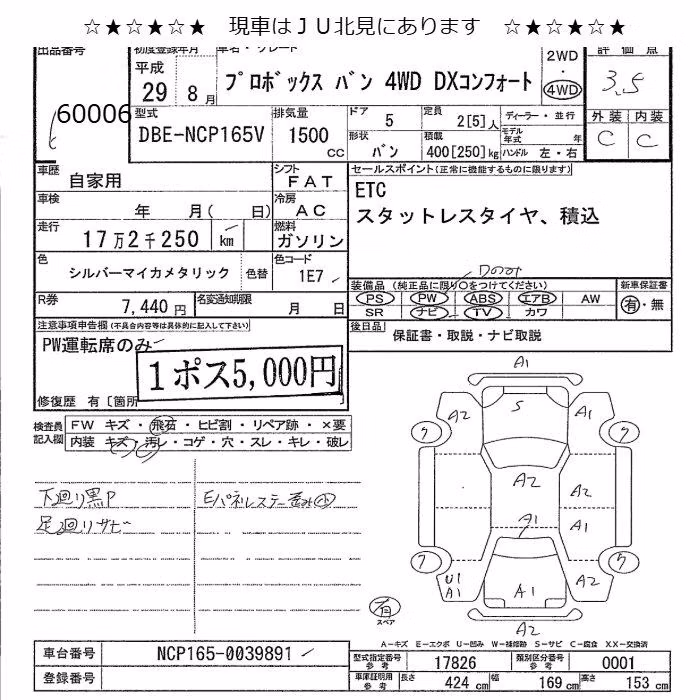 ☆★☆★☆★ 現車はＪＵ北見にあります ☆★☆★☆★
出品番号 60006
初度登録年月 平成 29 8月
車名・グレード プロボックス バン 4WD DXコンフォート
2WD・4WD
評価点 3.5
型式 DBE-NCP165V
排気量 1500 CC
ドア 5
定員 2[5]人
ディーラー・並行
形状 バン
積載 400[250]kg
モデル年式 年
ハンドル 左・右
外装 内装
C C
車歴 自家用
シフト FAT
セールスポイント(正常に機能するものに限ります)
ETC
スタットレスタイヤ、積込
車検 年 月( 日)
冷房 AC
走行 17万2千250 km
燃料 ガソリン
色 シルバーマイカメタリック 色替
色コード 1E7
R券 7,440円
名変通知期限 月 日
装備品 (純正品に限り○をつけてください)
PS PW ABS エアB AW
SR ナビ TV カワ
新車保証書 有・無
後日品 保証書・取説・ナビ取説
注意事項申告欄(不具合内容等は具体的に記入して下さい)
PW運転席のみ
1ポス5,000円
修復歴 有[箇所
検査員記入欄
FW キズ・飛石・ヒビ割・リペア跡・×要
内装 キズ・汚レ・コゲ・穴・スレ・キレ・破レ
下廻り黒P
足廻りサビ
EパネルステーA歪み小
A1
A2 S A1
ワ ワ
A2 A2
A1 A1
ワ ワ
U1
A1 A1 A2
A2
有 スペア
A-キズ E-エクボ U-凹み W-補修跡 S-サビ C-腐食 XX-交換済
車台番号 NCP165-0039891
登録番号
型式指定番号 参考 17826
類別区分番号 参考 0001
車庫証明用 参考 長さ 424 cm 幅 169 cm 高さ 153 cm